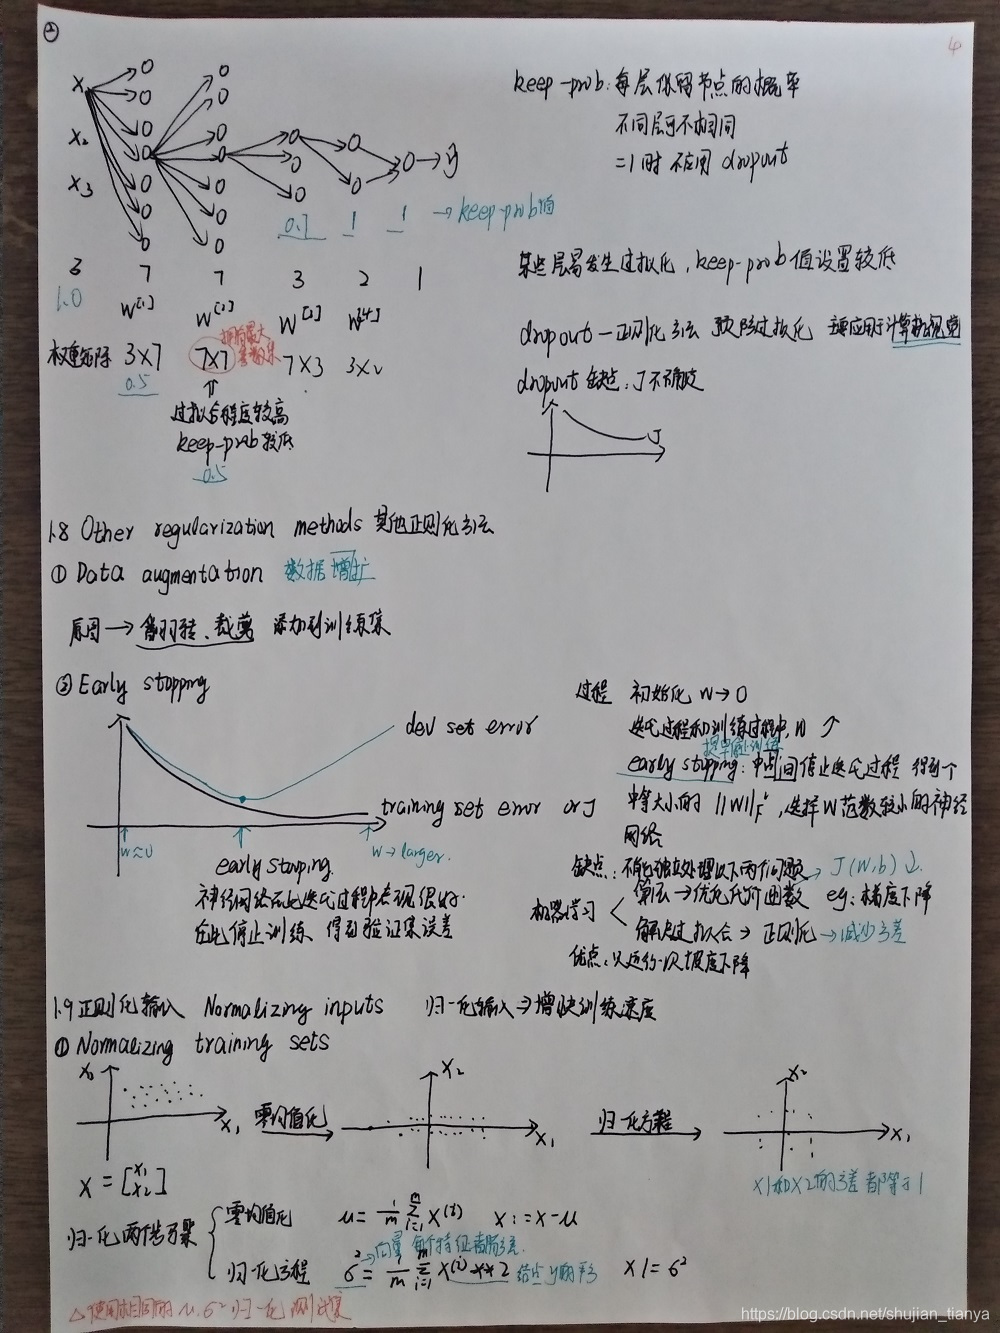 ②
4
x₁
x₂
x₃
ŷ
keep-prob: 每层保留节点的概率
不同层可不相同
=1时 不应用 dropout
0.7 1 1 → keep-prob值
3 7 7 3 2 1
1.0
W[1] W[2] W[3] W[4]
权重矩阵 3×7 7×7 7×3 3×2
拥有最大
参数集
0.5
⇑
过拟合程度较高
keep-prob较低
0.5
某些层易发生过拟化, keep-prob值设置较低
dropout — 正则化方法 预防过拟化 主要应用于计算机视觉
dropout 缺点: J不确定
J
1.8 Other regularization methods 其他正则化方法
① Data augmentation 数据增扩
原图 → 翻转、裁剪 添加到训练集
② Early stopping
dev set error
training set error or J
w≈0
w → larger.
early stopping.
神经网络在此迭代过程中表现很好.
在此停止训练, 得到验证集误差
过程 初始化 W→0
迭代过程和训练过程中, W ↗
提早停止训练
early stopping: 中间停止迭代过程 得到个
中等大小的 ||W||²F, 选择W范数较小的神经
网络
缺点: 不能独立处理以下两个问题 → J(W,b)↓.
机器学习 < 算法 → 优化代价函数 eg: 梯度下降
解决过拟合 → 正则化 → 减少方差
优点: 只运行一次梯度下降
1.9 正则化输入 Normalizing inputs 归一化输入 ⇒ 增快训练速度
① Normalizing training sets
x₂ x₁ 零均值化 x₂ x₁ 归一化方差 x₂ x₁
x = [x₁ x₂]
x1和x2的方差都等于1
归一化两个步骤
零均值化 μ = 1/m Σ(i=1→m) x(i) x := x-μ
→ 向量 每个特征都有方差.
归一化方程 σ² = 1/m Σ(i=1→m) x(i)**2 x /= σ²
△ 使用相同的 μ, σ² 归一化测试集
https://blog.csdn.net/shujian_tianya